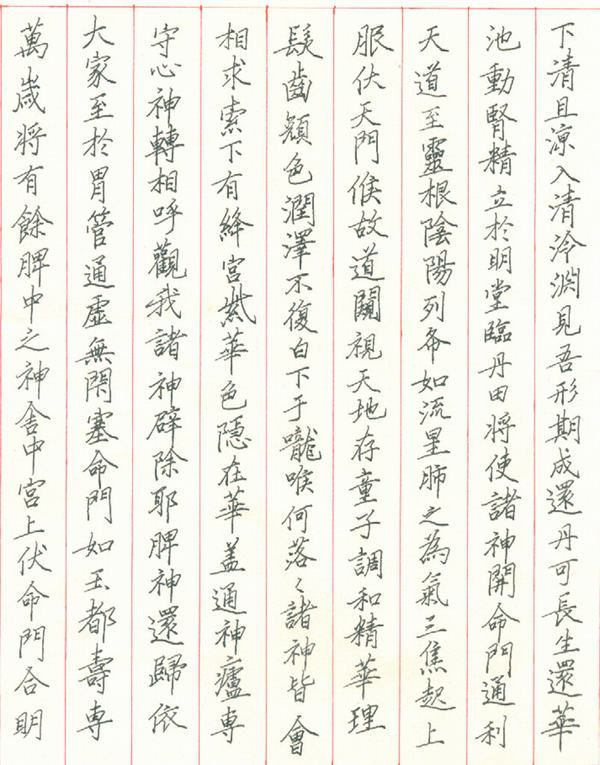 下清且涼入清泠淵見吾形期成還丹可長生還華
池動腎精立於明堂臨丹田將使諸神開命門通利
天道至靈根陰陽列布如流星肺之為氣三焦起上
服伏天門候故道闚視天地存童子調和精華理
髮齒顏色潤澤不復白下于嚨喉何落々諸神皆會
相求索下有絳宮紫華色隱在華盖通神廬專
守心神轉相呼觀我諸神辟除耶脾神還歸依
大家至於胃管通虛無閇塞命門如玉都壽專
萬歲將有餘脾中之神舍中宮上伏命門合明